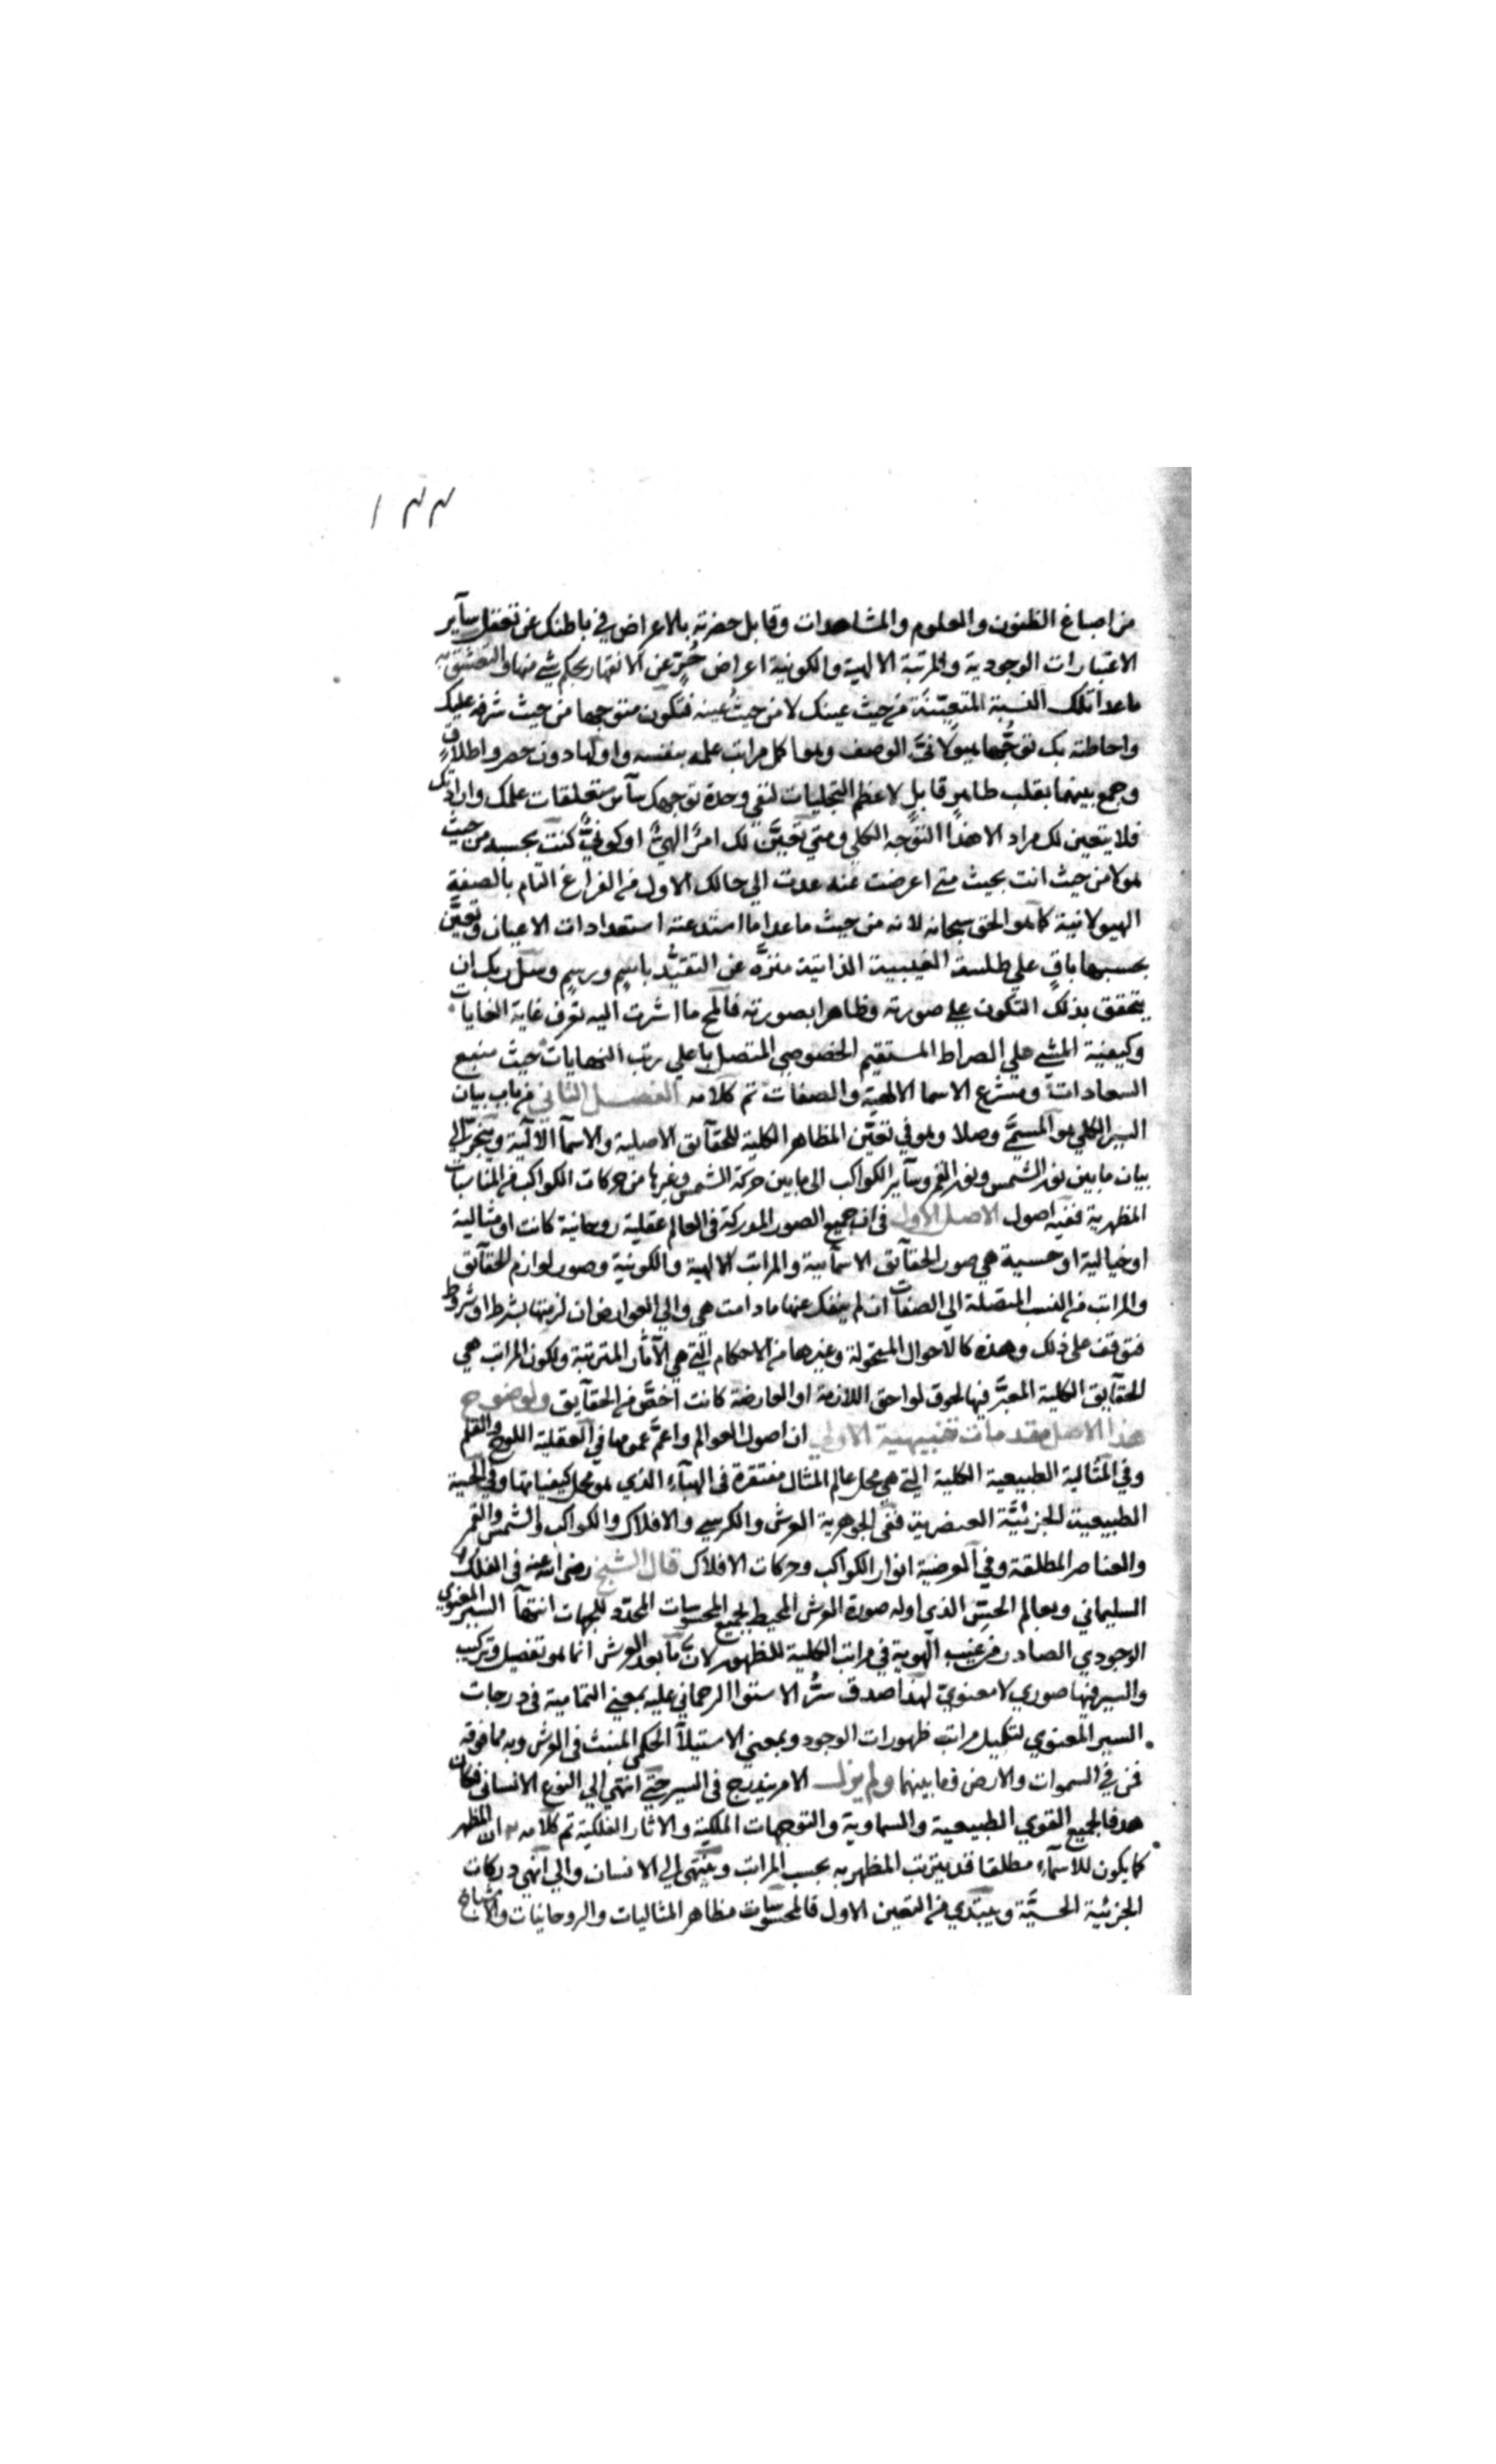 ١٣٣
من اصباغ الظنون والعلوم والمشاهدات وقابل حضرته بالاعراض في باطنك عن تعقل سآير
الاعتبارات الوجودية والمرتبة الالهية والكونية اعراض حُرٍّ عن الانقهار بحكم شي منها والتعشق به
ما عدا تلك النسبة المتعيّنة من حيث عينك لا من حيث عينه فتكون متوجها من حيث شرفه عليك
واحاطته بك توجُّها هيولانيَّ الوصف وهو اكمل مراتب علمه بنفسه واولها دون حصر واطلاق
وجمع بينهما بقلب طاهر قابل لاعظم التجليات لتفي وحدة توجهك سآير متعلقات علمك وارادتك
فلا يتعين لك مراد الا هذا التوجه الكلي ومتي تعيَّن لك امرٌ الهيٌّ او كونيٌّ كنت بحسبه من حيث
هو لا من حيث انت بحيث متي اعرضت عنه عدت الي حالك الاول من الفراغ التام بالصفة
الهيولانية كما هو الحق سبحانه لانه من حيث ما عدا ما استدعته استعدادات الاعيان وتعيَّن
بحسبها باقٍ علي طلسة الغيبية الذاتية منزَّه عن التقيُّد باسمٍ ورسمٍ وسل ربك ان
يتحقق بذلك التكون علي صورته وظاهرا بصورته فالمح ما اشرت اليه تعرف غاية الغايات
وكيفية المشي علي الصراط المستقيم الخصوصي المتصل باعلي رتب النهايات حيث منبع
السعادات ومشرع الاسما الالهية والصفات تم كلامه الفصل الثاني من باب بيان
السير الكلي هو المسمَّي وصلا وهو في تعيّن المظاهر الكلية للحقآيق الاصلية والاسمآ الآلهية وينجرّ الي
بيان ما بين نور الشمس ونور القمر وسآير الكواكب الى ما بين حركة الشمس وغيرها من حركات الكواكب من المناسبات
المظهرية ففيه اصول الاصل الاول في ان جميع الصور المدركة في العالم عقلية روحانية كانت او مثالية
او خيالية او حسية هي صور الحقآيق الاسمآيية والمراتب الالهية والكونية وصور لوازم الحقآيق
والمراتب من النسب المتصلة الي الصفات ان لم ينفك عنها ما دامت هي والي العوارض ان لزمتها بشرط او شروط
فتوقف على ذلك وهذه كالاحوال المتحولة وغيرها من الاحكام التي هي الآثار المترتبة ولكون المراتب هي
الحقآيق الكلية المعتبَّر فيها لحوق لواحق اللازمة او العارضة كانت اخصَّ من الحقآيق ولوضوح
هذا الاصل مقدمات تنبيهية الاولي ان اصول العوالم واعمَّ عمومها في العقلية اللوح والقلم
وفي المثالية الطبيعية الكلية التي هي محل عالم المثال مفتقرة في الهبآء الذي هو محل كيفياتها وفي الحسية
الطبيعية الجزئيَّة العنصرية ففي الجوهرية العرش والكرسي والافلاك والكواكب والشمس والقمر
والعناصر المطلقة وفي العرضية انوار الكواكب وحركات الافلاك قال الشيخ رضي الله عنه في الفلك
السليماني وبعالم الحسّ الذي اوله صورة العرش المحيط لجميع المحسوسات المحدّد للجهات انتهآ السير المعنوي
الوجودي الصادر من غيب الهوية في مراتب الكلية للظهور لان ما بعد العرش انما هو تفصيل وتركيب
والسير فيها صوري لا معنوي لهذا صدق سرُّ الاستوا الرحماني عليه بمعني التمامية في درجات
السير المعنوي لتكميل مراتب ظهورات الوجود وبمعني الاستيلآ الحكمي المنبث في العرش وبه مما فوقه
فمن في السموات والارض فما بينهما ولم يزل الامر يندرج في السير حتي انتهي الي النوع الانساني فكان
هدفا لجميع القوي الطبيعية والسماوية والتوجهات الملكية والاثار الفلكية تم كلامه ان المظهر
كما يكون للاسمآء مطلقا قد يترتب المظهرية بحسب المراتب وينتهي الي الانسان والي انهي دركات
الجزئية الحسيَّة ويبتدي من التعين الاول فالمحسوسات مظاهر المثاليات والروحانيات والاشباح